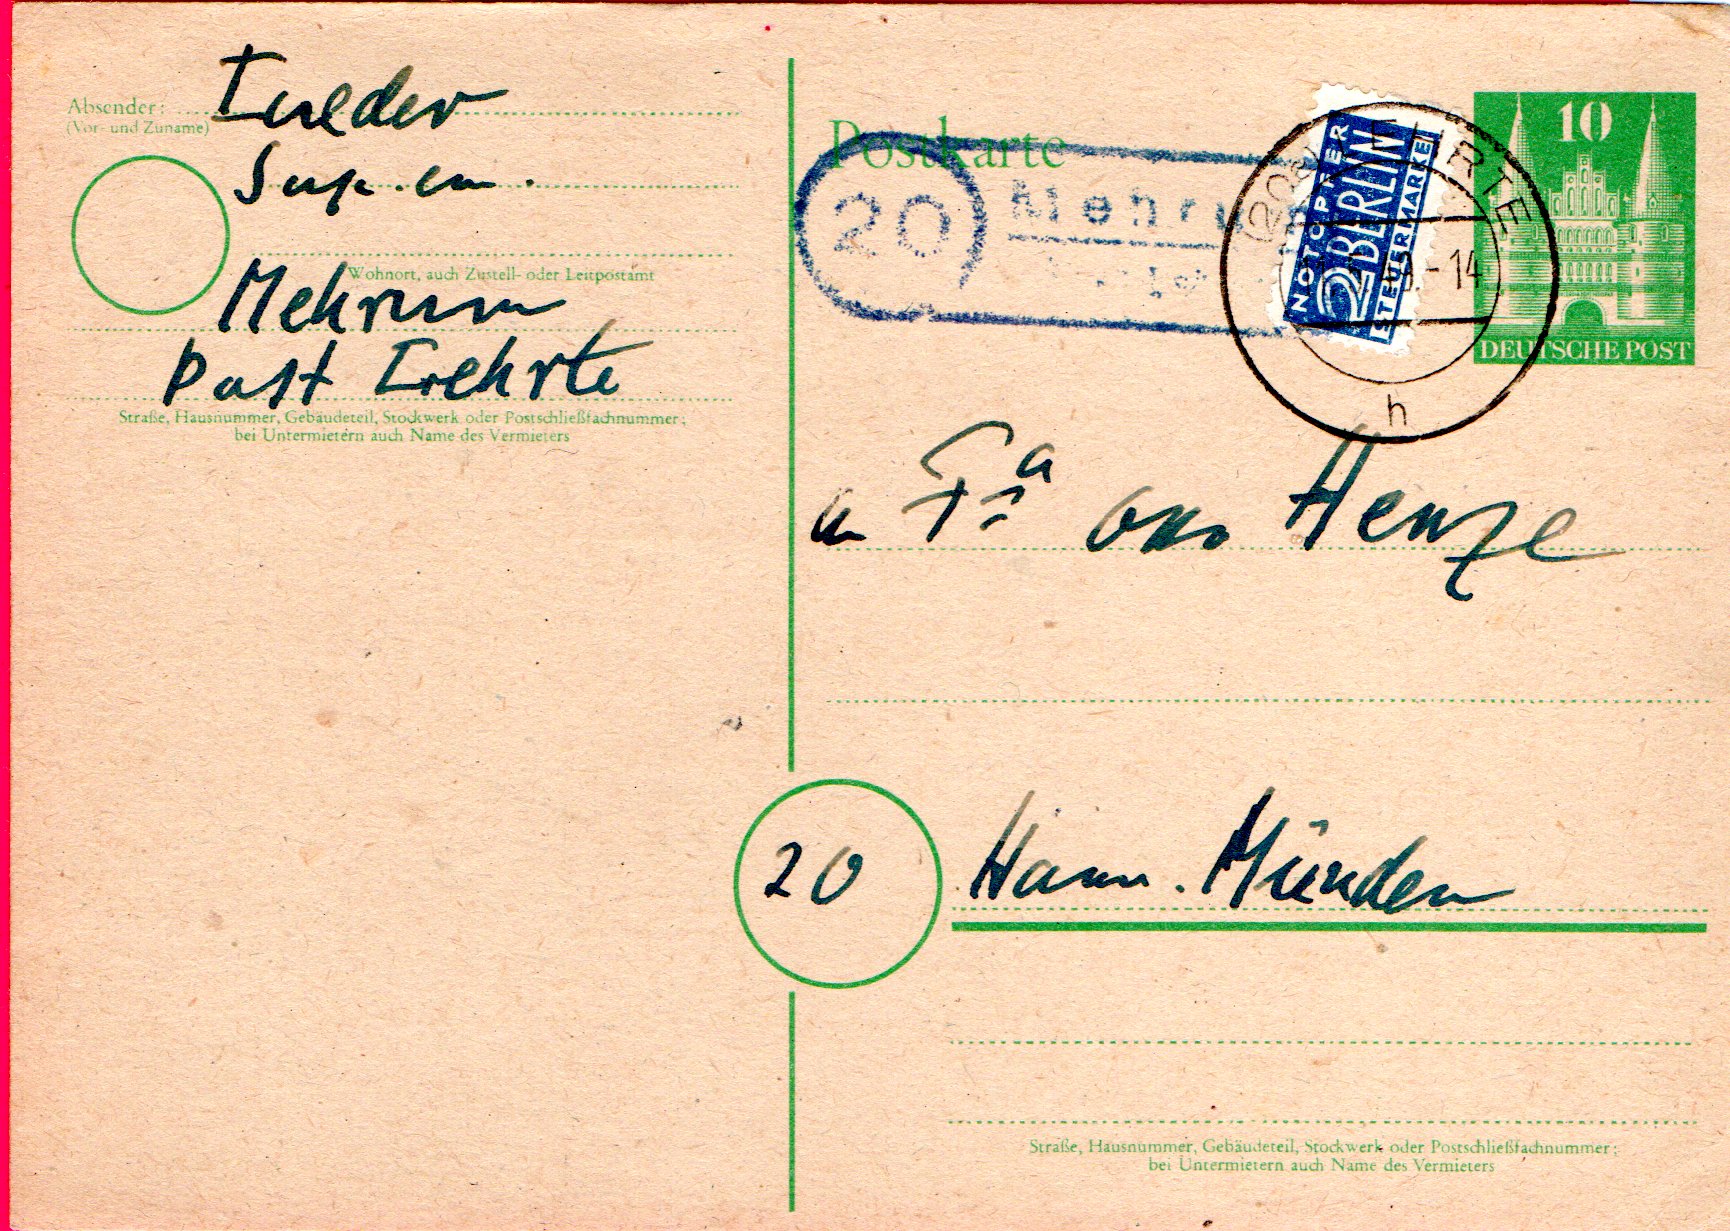 Absender:
(Vor- und Zuname)
Sup. em.
Wohnort, auch Zustell- oder Leitpostamt
Mehrum
Post Lehrte
Straße, Hausnummer, Gebäudeteil, Stockwerk oder Postschließfachnummer;
bei Untermietern auch Name des Vermieters
Postkarte
20 Mehrum
(20a) LEHRTE
-14
h
NOTOPFER
2 BERLIN
STEUERMARKE
10
DEUTSCHE POST
Fa Otto Henze
20 Hann. Münden
Straße, Hausnummer, Gebäudeteil, Stockwerk oder Postschließfachnummer;
bei Untermietern auch Name des Vermieters